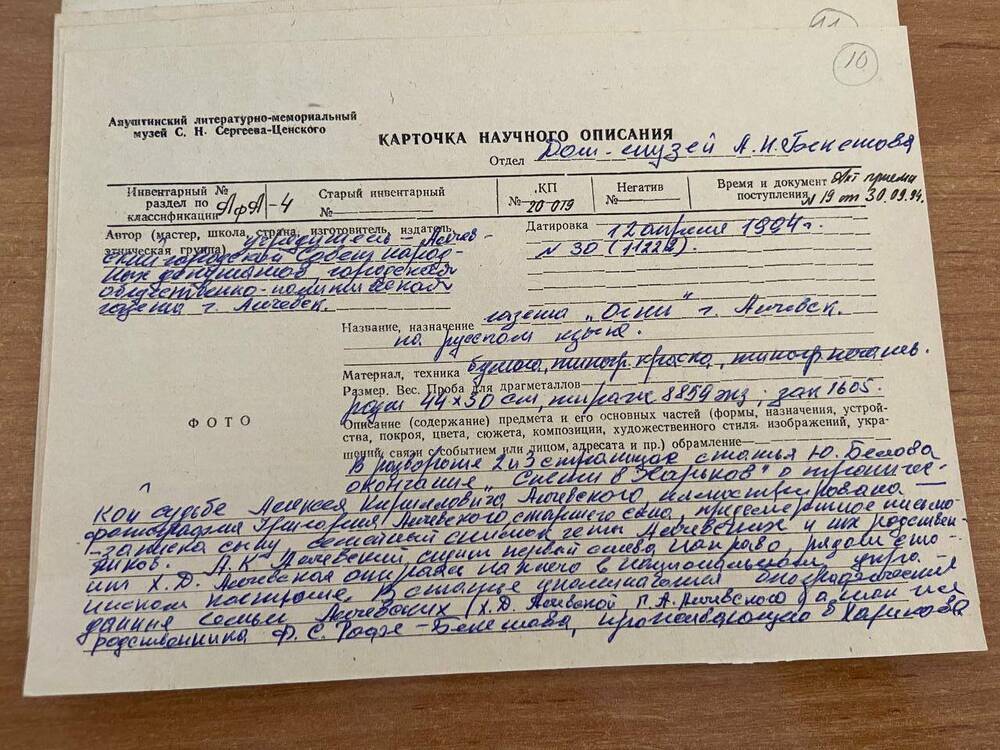 11
10
Алуштинский литературно-мемориальный
музей С. Н. Сергеева-Ценского
КАРТОЧКА НАУЧНОГО ОПИСАНИЯ
Отдел Дом-музей А.Н. Бекетова
Инвентарный №
раздел по
классификации АфА-4
Старый инвентарный
№
КП
№ 20 019
Негатив
№
Время и документ Акт приема
поступления N 19 от 30.09.94.
Автор (мастер, школа, страна, изготовитель, издатель,
этническая группа) учредитель Алчев-
ский городской Совет народ-
ных депутатов, городская
общественно-политическая
газета г. Алчевск.
Датировка 12 апреля 1994 г.
N 30 (11222)
Название, назначение газета „Огни" г. Алчевск.
на русском языке.
Материал, техника бумага, типогр. краска, типогр. печать.
Размер. Вес. Проба для драгметаллов
разм 44×30 см, тираж 8859 экз; зак 1605.
Описание (содержание) предмета и его основных частей (формы, назначения, устрой-
ства, покроя, цвета, сюжета, композиции, художественного стиля, изображений, укра-
шений, связи с событием или лицом, адресата и пр.) обрамление
ФОТО
В развороте 2 и 3 страницах статья Ю. Белова
окончание „Спеши в Харьков" о трагичес-
кой судьбе Алексея Кирилловича Алчевского, иллюстрирована
фотография Григория Алчевского, старшего сына, предсмертное письмо-
-записка сыну, семейный снимок четы Алчевских и их родствен-
ников. А.К. Алчевский сидит первый слева направо, рядом стоит
Х.Д. Алчевская в национальном укра-
инском костюме. В статье упоминаются биографические
данные семьи Алчевских (Х.Д. Алчевской, Г.А. Алчевского) а также
родственника Ф.С. Рофе-Бекетова, проживающего в Харькове